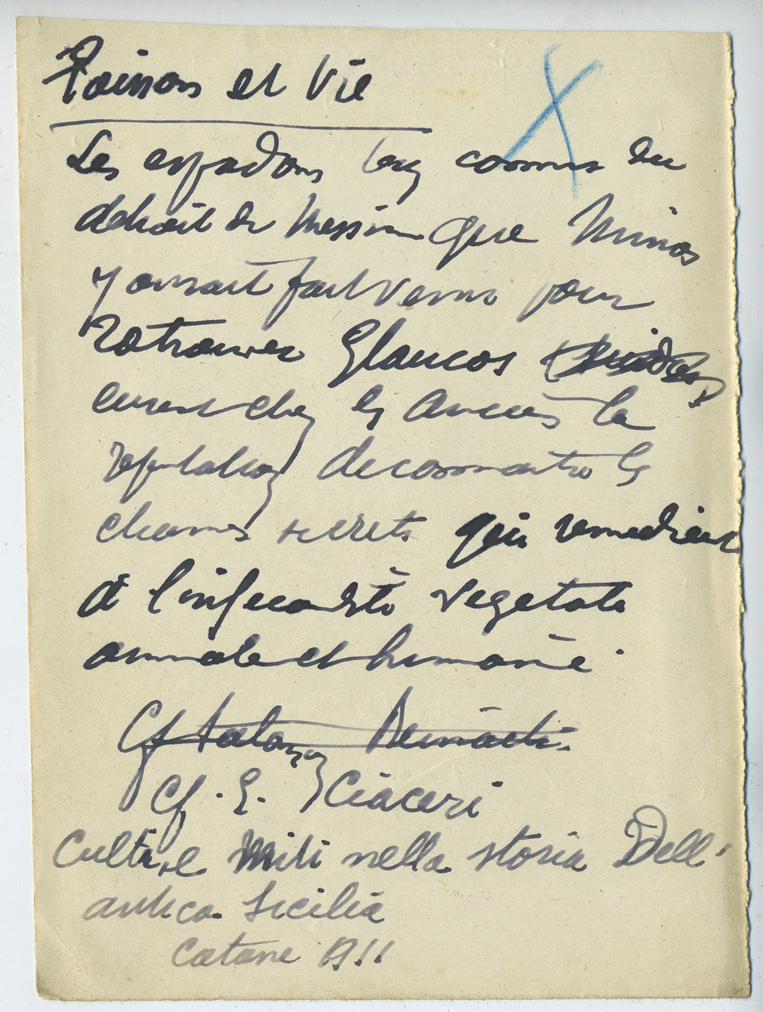 Poissons et Vie
Les espadons bien connus du
détroit de Messine que Minos
y aurait fait venir pour
retrouver Glaucos
eurent chez les Anciens la
reputation de connaitre les
charmes secrets qui remedient
à l'infecondité vegetale
animale et humaine.
Cf
Cf. E. Ciaceri
Culti e Miti nella storia Dell'
antica Sicilia
Catane 1911